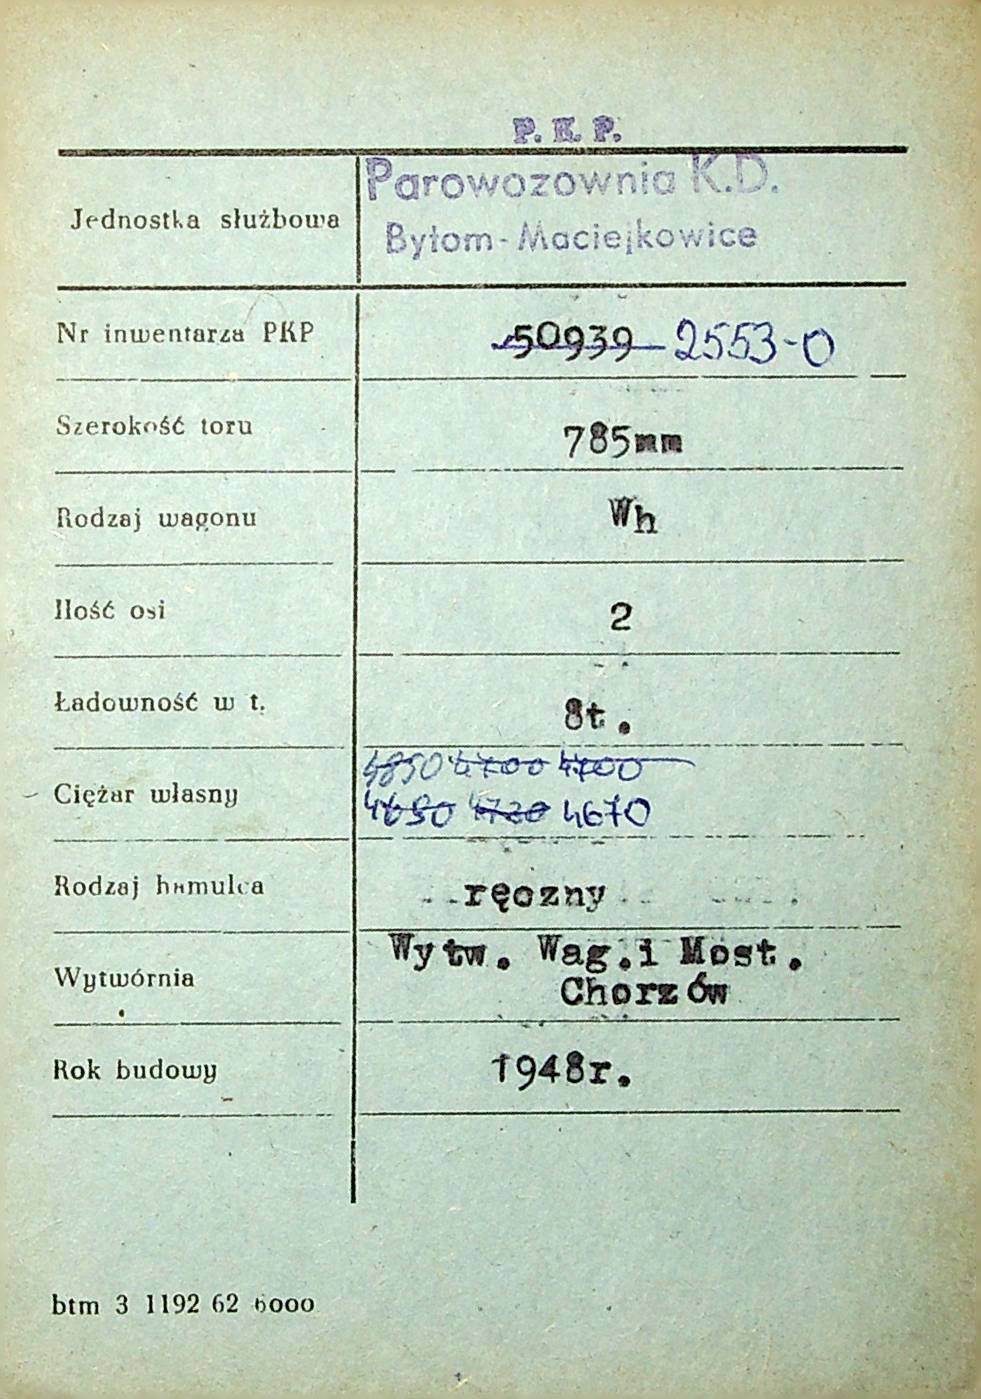 P. K. P.
Jednostka służbowa
Parowozownia K.D.
Bytom-Maciejkowice
Nr inwentarza PKP 50939 2553-0
Szerokość toru 785mm
Rodzaj wagonu Wh
Ilość osi 2
Ładowność w t. 8t.
4850 4700 4700
Ciężar własny
4680 4720 4670
Rodzaj hamulca ręczny
Wytwórnia Wytw. Wag.i Most.
Chorzów
Rok budowy 1948r.
btm 3 1192 62 6000